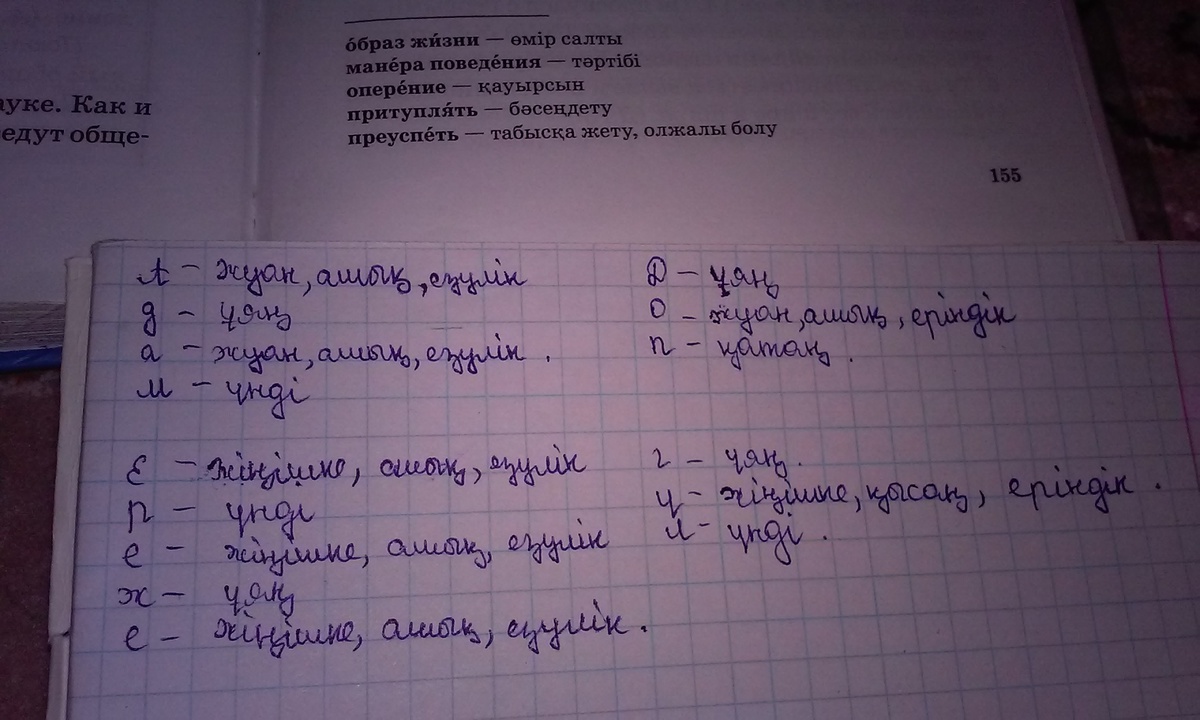 ауке. Как и
едут обще-
о́браз жи́зни — өмір салты
мане́ра поведе́ния — тәртібі
опере́ние — қауырсын
притупля́ть — бәсеңдету
преуспе́ть — табысқа жету, олжалы болу
155
А – жуан, ашық, езулік
д – ұяң
а – жуан, ашық, езулік .
м – үнді
Д – ұяң
о – жуан, ашық, еріндік
п – қатаң .
Е – жіңішке, ашық, езулік
р – үнді
е – жіңішке, ашық, езулік
ж – ұяң
е – жіңішке, ашық, езулік .
г – ұяң .
ү – жіңішке, қысаң, еріндік .
л – үнді .